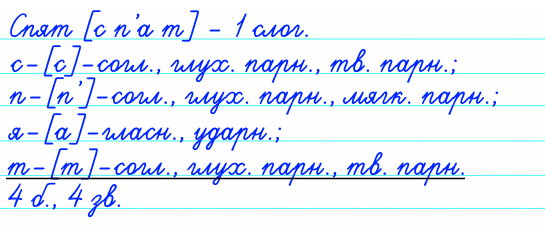 Спят [с п'а т] – 1 слог.
с–[с]–согл., глух. парн., тв. парн.;
п–[п']–согл., глух. парн., мягк. парн.;
я–[а]–гласн., ударн.;
т–[т]–согл., глух. парн., тв. парн.
4 б., 4 зв.